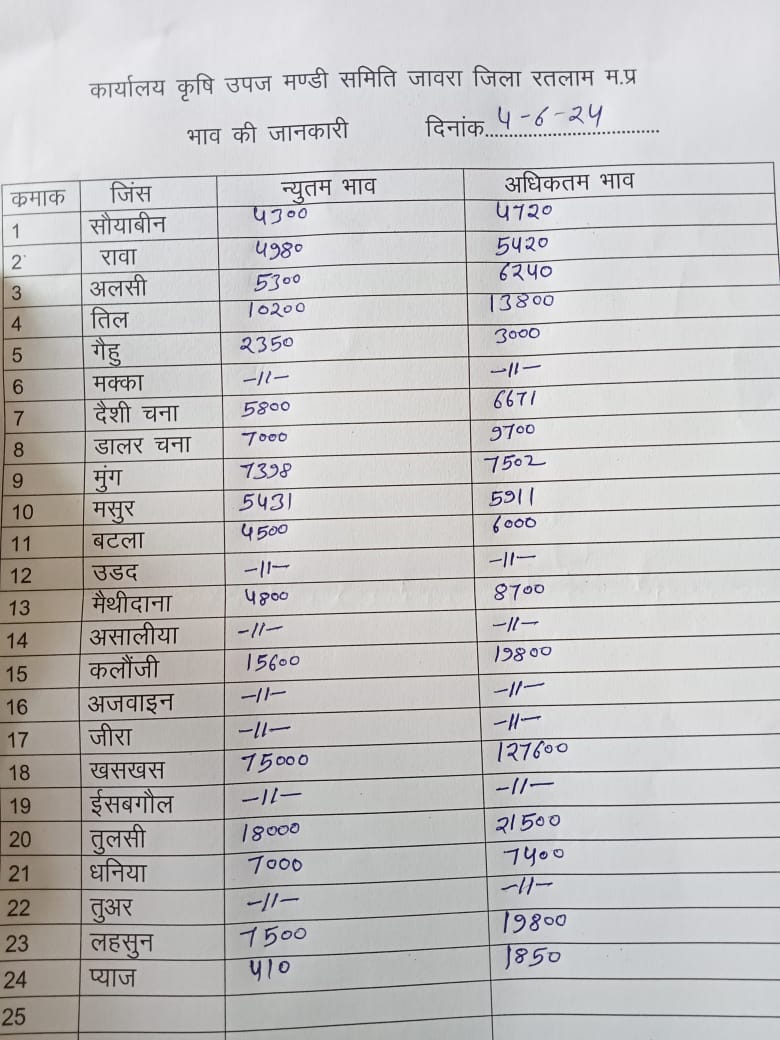 कार्यालय कृषि उपज मण्डी समिति जावरा जिला रतलाम म.प्र
भाव की जानकारी दिनांक..4-6-24..............
कमाक जिंस न्युतम भाव अधिकतम भाव
1 सौयाबीन 4300 4720
2 रावा 4980 5420
3 अलसी 5300 6240
4 तिल 10200 13800
5 गैहु 2350 3000
6 मक्का -11- -11-
7 दैशी चना 5800 6671
8 डालर चना 7000 9700
9 मुंग 7398 7502
10 मसुर 5431 5911
11 बटला 4500 6000
12 उडद -11- -11-
13 मैथीदाना 4800 8700
14 असालीया -11- -11-
15 कलौंजी 15600 19800
16 अजवाइन -11- -11-
17 जीरा -11- -11-
18 खसखस 75000 127600
19 ईसबगौल -11- -11-
20 तुलसी 18000 21500
21 धनिया 7000 7400
22 तुअर -11- -11-
23 लहसुन 7500 19800
24 प्याज 410 1850
25